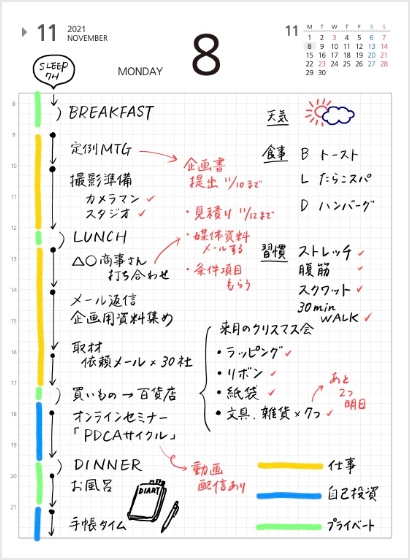 11
2021
NOVEMBER
MONDAY
8
11
M T W T F S S
1 2 3 4 5 6 7
8 9 10 11 12 13 14
15 16 17 18 19 20 21
22 23 24 25 26 27 28
29 30
SLEEP
7H
8
9
10
11
12
13
14
15
16
17
18
19
20
21
BREAKFAST
定例MTG
撮影準備
カメラマン ✓
スタジオ ✓
LUNCH
△○商事さん
打ち合わせ
メール返信
企画用資料集め
取材
依頼メール×30社
買いもの→百貨店
オンラインセミナー
「PDCAサイクル」
DINNER
お風呂
手帳タイム
企画書
提出 11/10まで
・見積り 11/12まで
・媒体資料
メールする
・条件項目
もらう
天気
食事 B トースト
L たらこスパ
D ハンバーグ
習慣 ストレッチ ✓
腹筋 ✓
スクワット ✓
30min
WALK ✓
来月のクリスマス会
・ラッピング ✓
・リボン ✓
・紙袋 ✓
・文具、雑貨×7つ ✓
あと
2つ
明日
動画
配信あり
DIARY
仕事
自己投資
プライベート